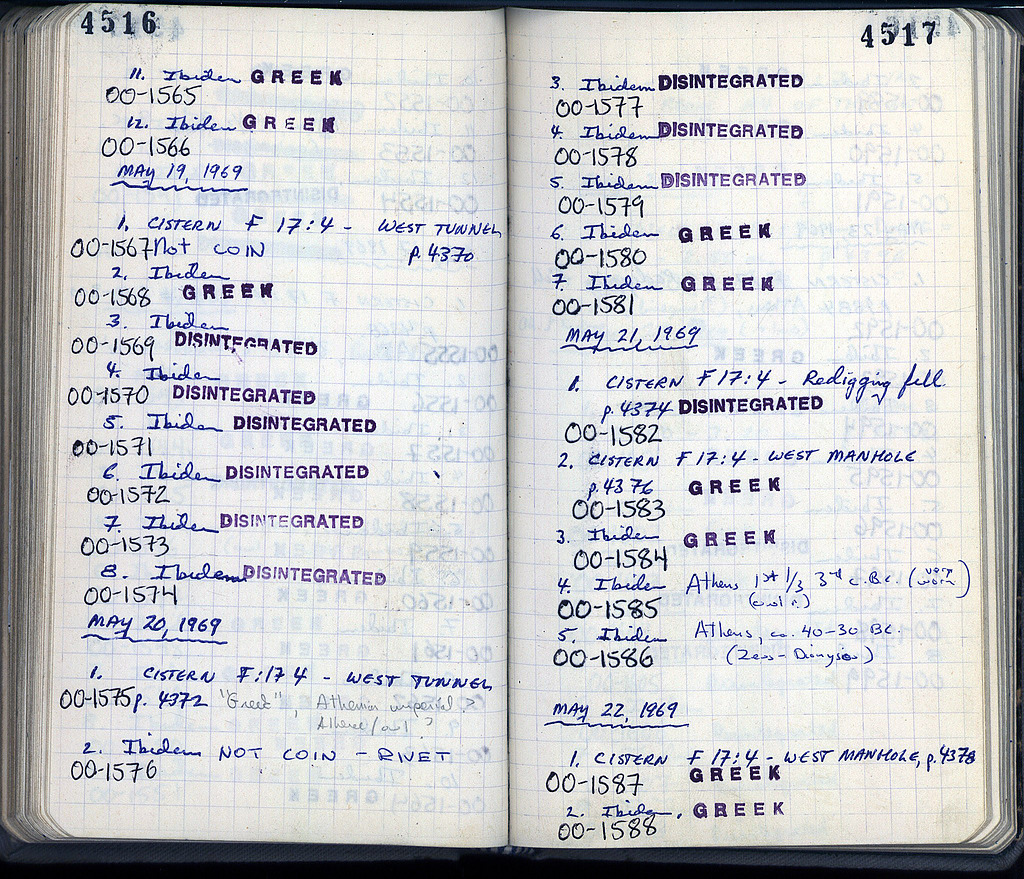 4516
11. Ibidem GREEK
OO-1565
12. Ibidem GREEK
OO-1566
MAY 19, 1969
1. CISTERN F 17:4 - WEST TUNNEL
OO-1567 Not COIN p. 4370
2. Ibidem
OO-1568 GREEK
3. Ibidem
OO-1569 DISINTEGRATED
4. Ibidem
OO-1570 DISINTEGRATED
5. Ibidem DISINTEGRATED
OO-1571
6. Ibidem DISINTEGRATED
OO-1572
7. Ibidem DISINTEGRATED
OO-1573
8. Ibidem DISINTEGRATED
OO-1574
MAY 20, 1969
1. CISTERN F:17 4 - WEST TUNNEL
OO-1575 p. 4372 "Greek", Athenian imperial?
Athena/owl?
2. Ibidem NOT COIN - RIVET
OO-1576
4517
3. Ibidem DISINTEGRATED
OO-1577
4. Ibidem DISINTEGRATED
OO-1578
5. Ibidem DISINTEGRATED
OO-1579
6. Ibidem GREEK
OO-1580
7. Ibidem GREEK
OO-1581
MAY 21, 1969
1. CISTERN F 17:4 - Redigging fill
p. 4374 DISINTEGRATED
OO-1582
2. CISTERN F 17:4 - WEST MANHOLE
p. 4376 GREEK
OO-1583
3. Ibidem GREEK
OO-1584
4. Ibidem Athens 1st 1/3 3rd c. B.C. (very worn)
OO-1585
5. Ibidem Athens, ca. 40-30 BC.
OO-1586 (Zeus - Dionysos)
MAY 22, 1969
1. CISTERN F 17:4 - WEST MANHOLE, p. 4378
OO-1587 GREEK
2. Ibidem, GREEK
OO-1588